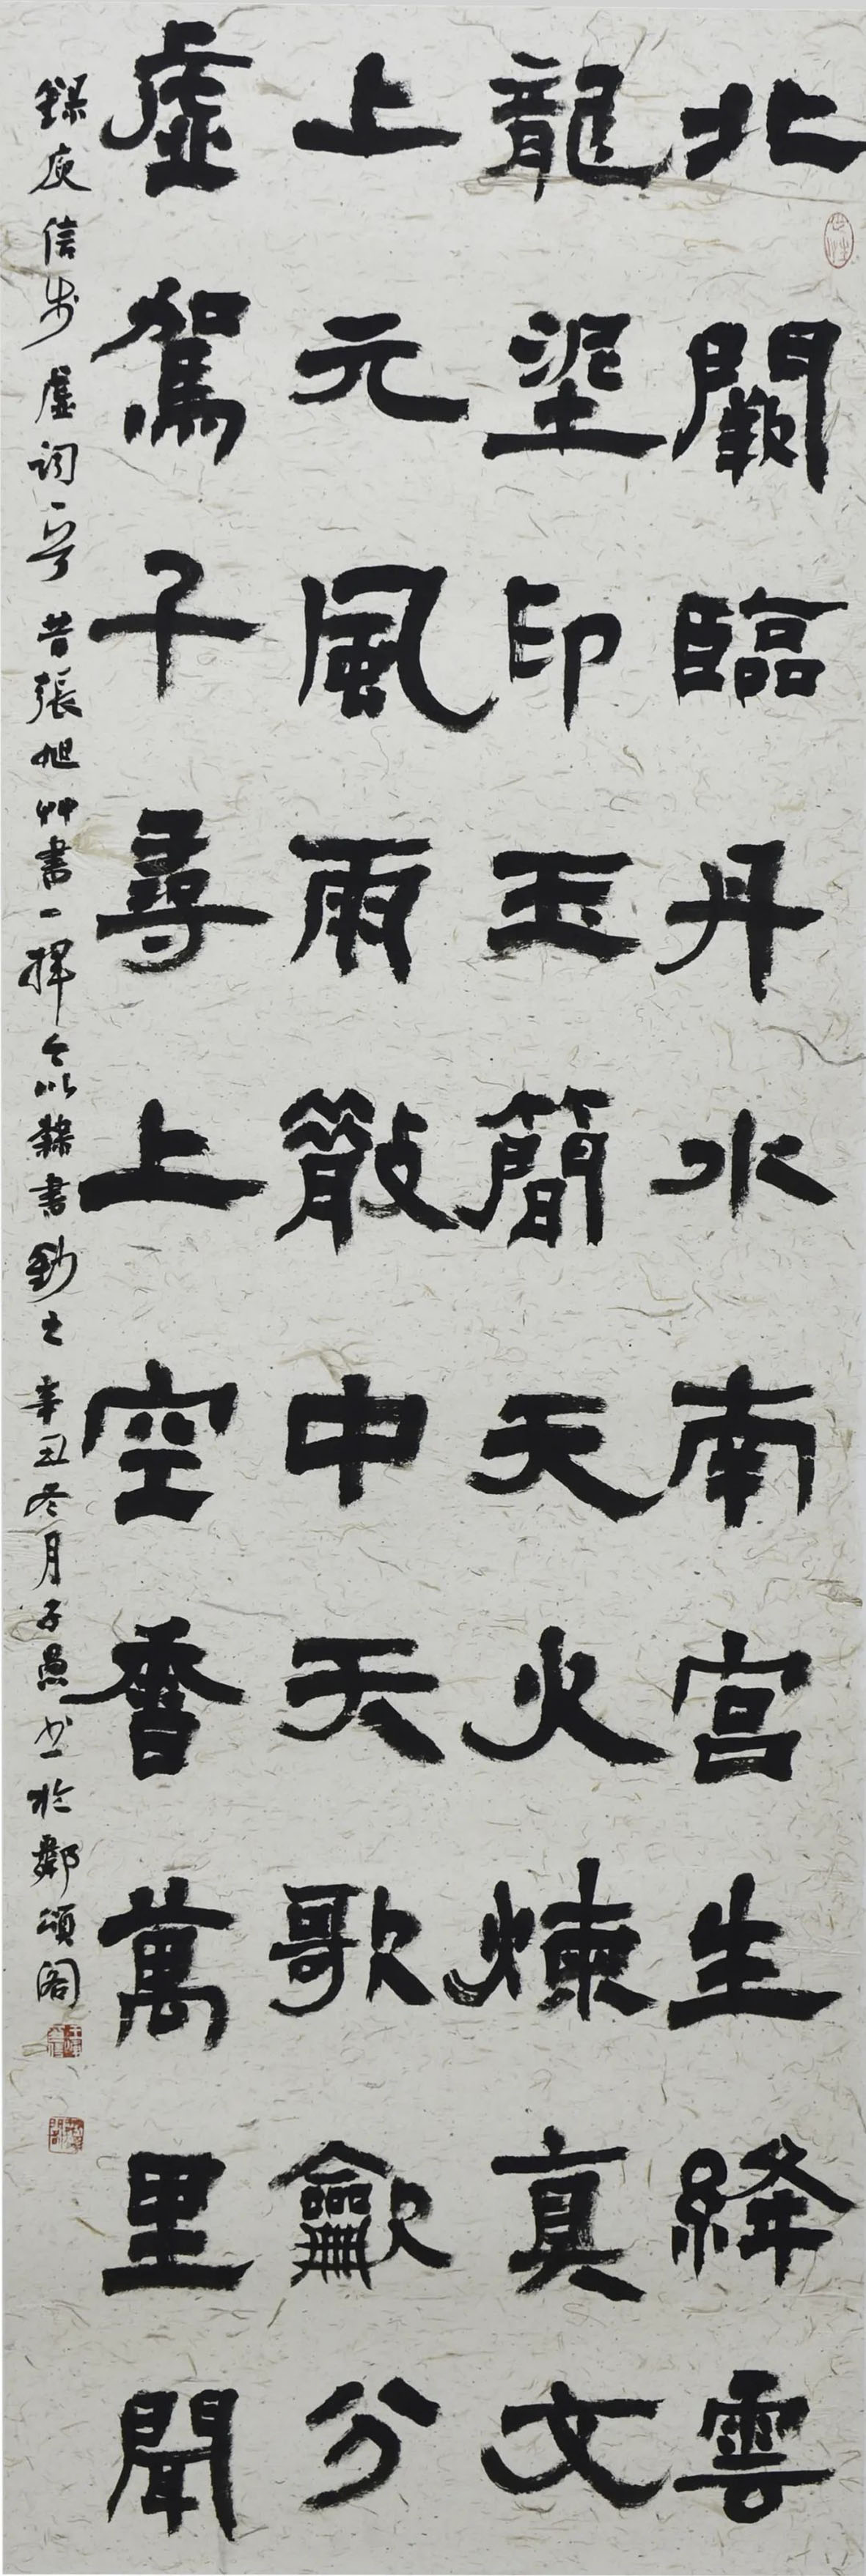 北闕臨丹水南宮生絳雲
龍埿印玉簡天火煉真文
上元風雨散中天歌龡分
虛駕千尋上空香萬里聞
錄庾信步虛詞一首昔張旭艸書一揮今以隸書鈔之辛丑冬月子愚书於頌閣